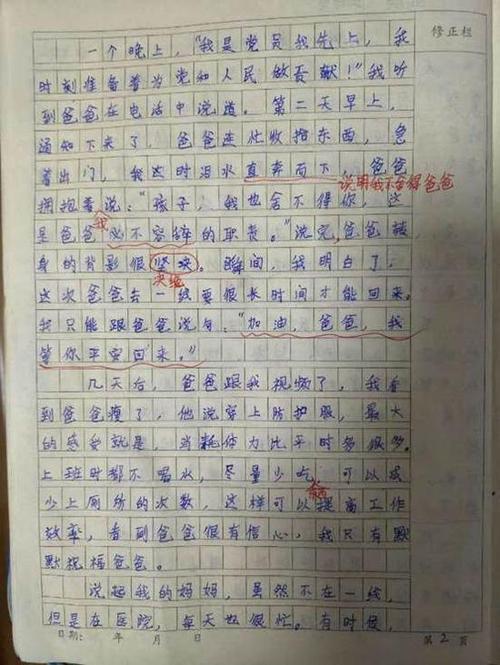 修正栏
一个晚上，“我是党员我先上，我
时刻准备着为党和人民做贡献！”我听
到爸爸在电话中说道。第二天早上，
通知下来了，爸爸连忙收拾东西，急
着出门，我这时泪水直奔而下，爸爸
说明我不舍得爸爸
拥抱着说：“孩子，我也舍不得你，这
是爸爸我必不容辞的职责。”说完，爸爸转
身的背影很坚决。瞬间，我明白了，
决绝
这次爸爸去一线要很长时间才能回来。
我只能跟爸爸说句：“加油，爸爸，我
等你平安回来。”
几天后，爸爸跟我视频了，我看
到爸爸瘦了，他说穿上防护服，最大
的感受就是，当耗体力比平时多很多。
上班时都不喝水，尽量少吃，可以减
少上厕所的次数，这样可以提高工作
效率，看到爸爸很有信心，我只有默
默祝福爸爸。
说起我的妈妈，虽然不在一线，
但是在医院，每天也很忙。有时候，
日期： 年 月 日 第2页